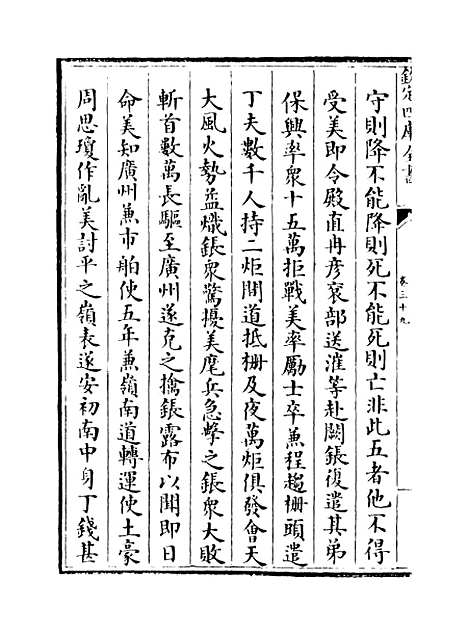 欽定四庫全書
卷三十九
守則降不能降則死不能死則亡非此五者他不得
受美即令殿直冉彦衮部送漼等赴闕鋹復遣其弟
保興率衆十五萬拒戰美率厲士卒兼程趨柵頭遣
丁夫數千人持二炬間道抵柵及夜萬炬俱發會天
大風火勢益熾鋹衆驚擾美麾兵急擊之鋹衆大敗
斬首數萬長驅至廣州遂克之擒鋹露布以聞即日
命美知廣州兼市舶使五年兼嶺南道轉運使土豪
周思瓊作亂美討平之嶺表遂安初南中身丁錢甚